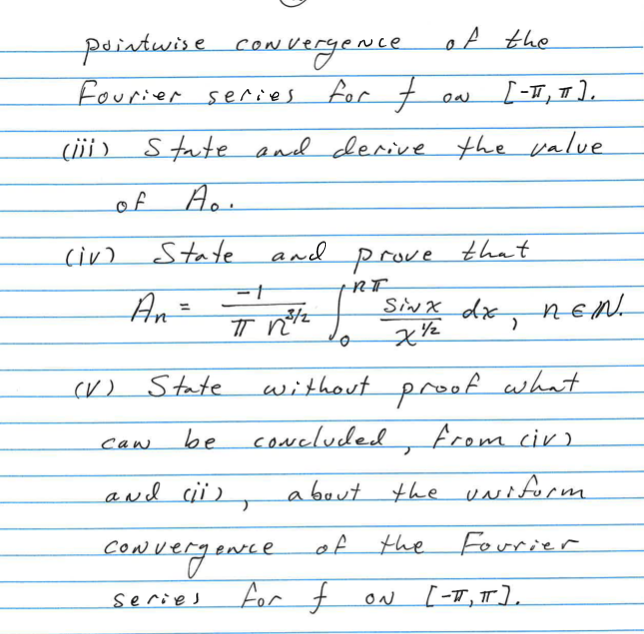 pointwise convergence of the
Fourier series for f on [-π, π].
(iii) State and derive the value
of A₀.
(iv) State and prove that
Aₙ = -1/(π n^{3/2}) ∫₀^{nπ} sin x / x^{1/2} dx, n ∈ ℕ.
(v) State without proof what
can be concluded, from (iv)
and (ii), about the uniform
convergence of the Fourier
series for f on [-π, π].